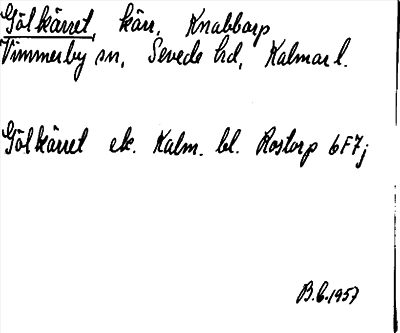 Gölkärret, kärr, Knabbarp
Vimmerby sn, Sevede hd, Kalmar l.
Gölkärret ek. Kalm. bl. Rostorp 6F7j
B.G.1957